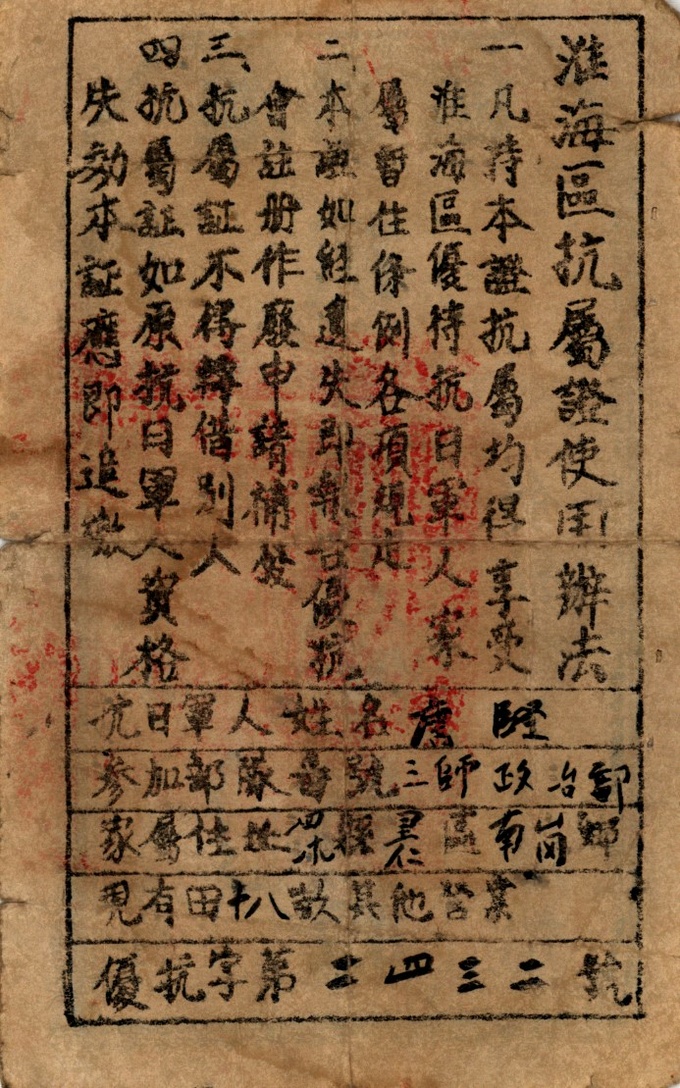 淮海區抗屬證使用辦法
一、凡持本證抗屬均得享受
淮海區優待抗日軍人家
屬暫住條例各項規定
二、本證如經遺失即報告優抗
會註册作廢申請補發
三、抗屬証不得轉借別人
四、抗屬証如原抗日軍人資格
失効本証應即追繳
抗日軍人姓名
參加部隊番號三師政治部
家屬住址四〈沭〉縣里仁區南崗鄉
現有田十八畝其他營業
優抗字第二四三二號